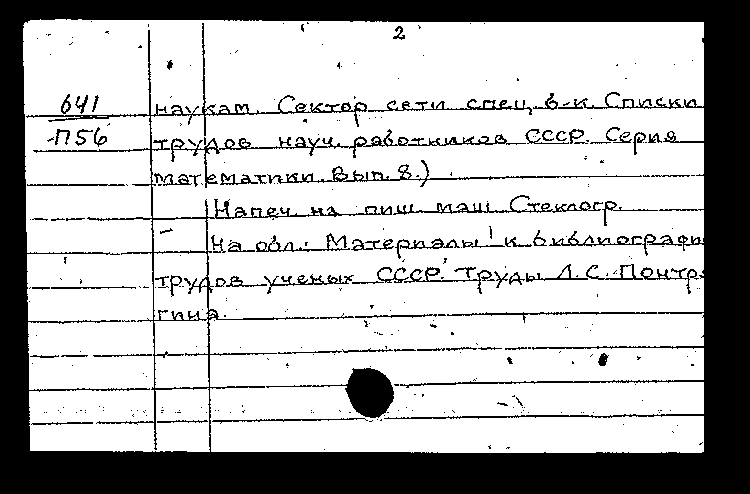 2
641
П56
наукам. Сектор сети спец. б-к. Списки
трудов науч. работников СССР. Серия
математики. Вып. 8.)
Напеч. на пиш. маш. Стеклогр.
На обл.: Материалы к библиографи
трудов ученых СССР. Труды Л. С. Понтря
гина.